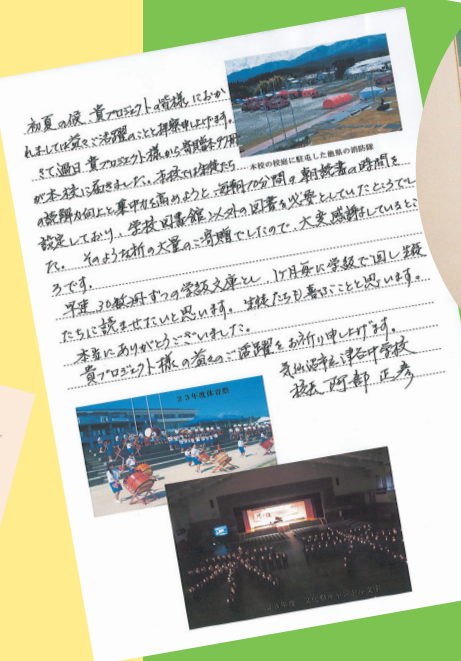 初夏の候、貴プロジェクトの皆様におか
れましては益々ご活躍のことと拝察申し上げます。
さて過日、貴プロジェクト様から寄贈を
が本校に届きました。本校では生徒たち
の読解力向上と集中力を高めようと、毎朝10分間の朝読書の時間を
設定しており、学校図書館以外の図書を必要としていたところでし
た。そのような折の大量のご寄贈でしたので、大変感謝しているとこ
ろです。
早速、30数冊ずつの学級文庫とし、1ヶ月毎に学級で回し生徒
たちに読ませたいと思います。生徒たちも喜ぶことと思います。
本当にありがとうございました。
貴プロジェクト様の益々のご活躍をお祈り申し上げます。
気仙沼市立津谷中学校
校長 阿部 正彦
本校の校庭に駐屯した他県の消防隊
23年度体育祭
23年度